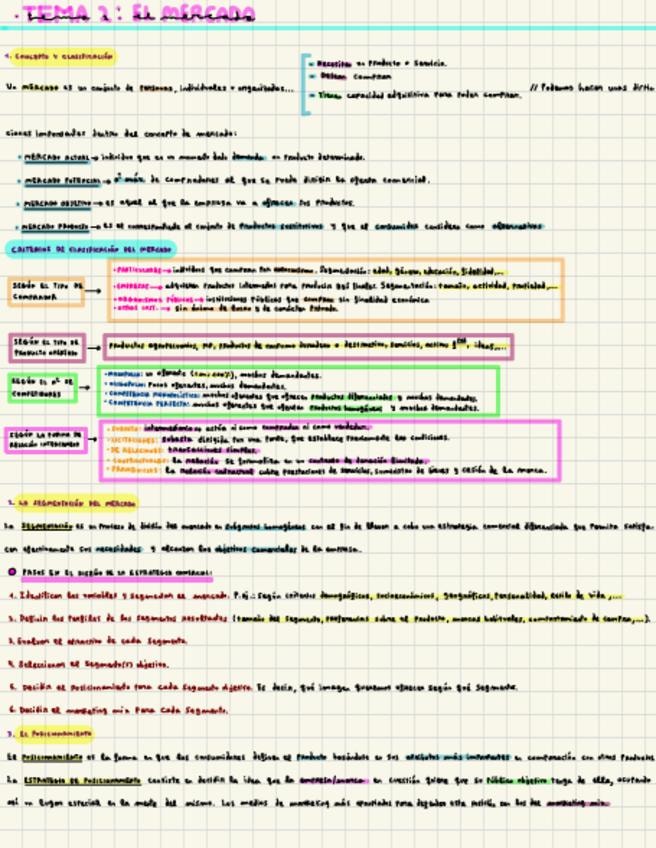 · TEMA 2: EL MERCADO
1. CONCEPTO Y CLASIFICACIÓN
- Necesitan un Producto o Servicio.
- Desean comprar
Un MERCADO es un conjunto de personas, individuales u organizadas...
- Tienen capacidad adquisitiva para poder comprar. // Podemos hacer unas distin-
ciones importantes dentro del concepto de mercado:
· MERCADO ACTUAL → individuo que en un momento dado demanda un Producto determinado.
· MERCADO POTENCIAL → nº máx. de compradores al que se puede dirigir la oferta comercial.
· MERCADO OBJETIVO → es aquel al que la empresa va a ofrecer sus Productos.
· MERCADO PRODUCTO → es el correspondiente al conjunto de Productos sustitutivos y que el consumidor considera como alternativas
CRITERIOS DE CLASIFICACIÓN DEL MERCADO
SEGÚN EL TIPO DE COMPRADOR →
· PARTICULARES → individuos que compran Segmentación: edad, género, educación, fidelidad,...
· EMPRESAS → adquieren Productos intermedios para producir Segmentación: tamaño, actividad, propiedad,...
· ORGANISMOS PÚBLICOS → instituciones Públicas que compran sin finalidad económica
· OTRAS INST. → sin ánimo de lucro y de carácter Privado.
SEGÚN EL TIPO DE PRODUCTO OFERTADO →
Productos agropecuarios, MP, Productos de consumo duradero o destructivo, servicios, activos ideas,...
SEGÚN EL Nº DE COMPETIDORES →
· MONOPOLIO: un oferente muchos demandantes.
· OLIGOPOLIO: Pocos oferentes, muchos demandantes.
· COMPETENCIA MONOPOLÍSTICA: muchos oferentes que ofrecen Productos diferenciados y muchos demandantes.
· COMPETENCIA PERFECTA: muchos oferentes que ofrecen Productos homogéneos y muchos demandantes.
SEGÚN LA FORMA DE RELACIÓN INTERCAMBIO →
· SUBASTA: no actúa ni como comprador ni como vendedor.
· LICITACIONES: subasta dirigida por una Parte, que establece previamente las condiciones.
· DE RELACIONES: transacciones simples.
· CONTRACTUALES: la relación se formaliza en un contrato de duración limitada.
· FRANQUICIAS: la relación contractual cubre prestaciones de servicios, suministro de bienes y cesión de la marca.
2. LA SEGMENTACIÓN DEL MERCADO
La SEGMENTACIÓN es un Proceso de división del mercado en subgrupos homogéneos con el fin de llevar a cabo una estrategia comercial diferenciada que Permita satisfa-
cer efectivamente sus necesidades y alcanzar los objetivos comerciales de la empresa.
PASOS EN EL DISEÑO DE LA ESTRATEGIA COMERCIAL:
1. Identificar las variables y segmentar el mercado. P.ej.: Según criterios demográficos, socioeconómicos, geográficos, Personalidad, estilo de vida,...
2. Definir los Perfiles de los segmentos resultantes (tamaño del segmento, preferencias sobre el Producto, marcas habituales, comportamiento de compra,...).
3. Evaluar el atractivo de cada Segmento.
4. Seleccionar el Segmento(s) objetivo.
5. Decidir el Posicionamiento Para cada Segmento objetivo. Es decir, qué imagen queremos ofrecer según qué Segmento.
6. Decidir el marketing mix Para cada Segmento.
3. EL POSICIONAMIENTO
El POSICIONAMIENTO es la forma en que los consumidores definen el Producto basándose en sus atributos más importantes en comparación con otros Productos
La ESTRATEGIA DE POSICIONAMIENTO consiste en decidir la idea que la empresa/marca en cuestión quiere que su Público objetivo tenga de ella, ocupando
así un lugar especial en la mente del mismo. Los medios de marketing más apropiados Para defender esta posición son los del marketing mix.